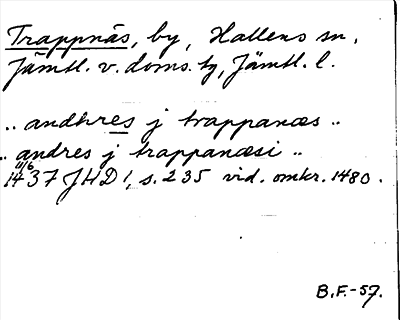 Trappnäs, by, Hallens sn,
Jämtl. v. doms. tg, Jämtl. l.
.. andhres j trappanæs ..
.. andres j trappanæsi ..
11/6 1437 JHD 1, s. 235 vid. omkr. 1480.
B.F.-57.